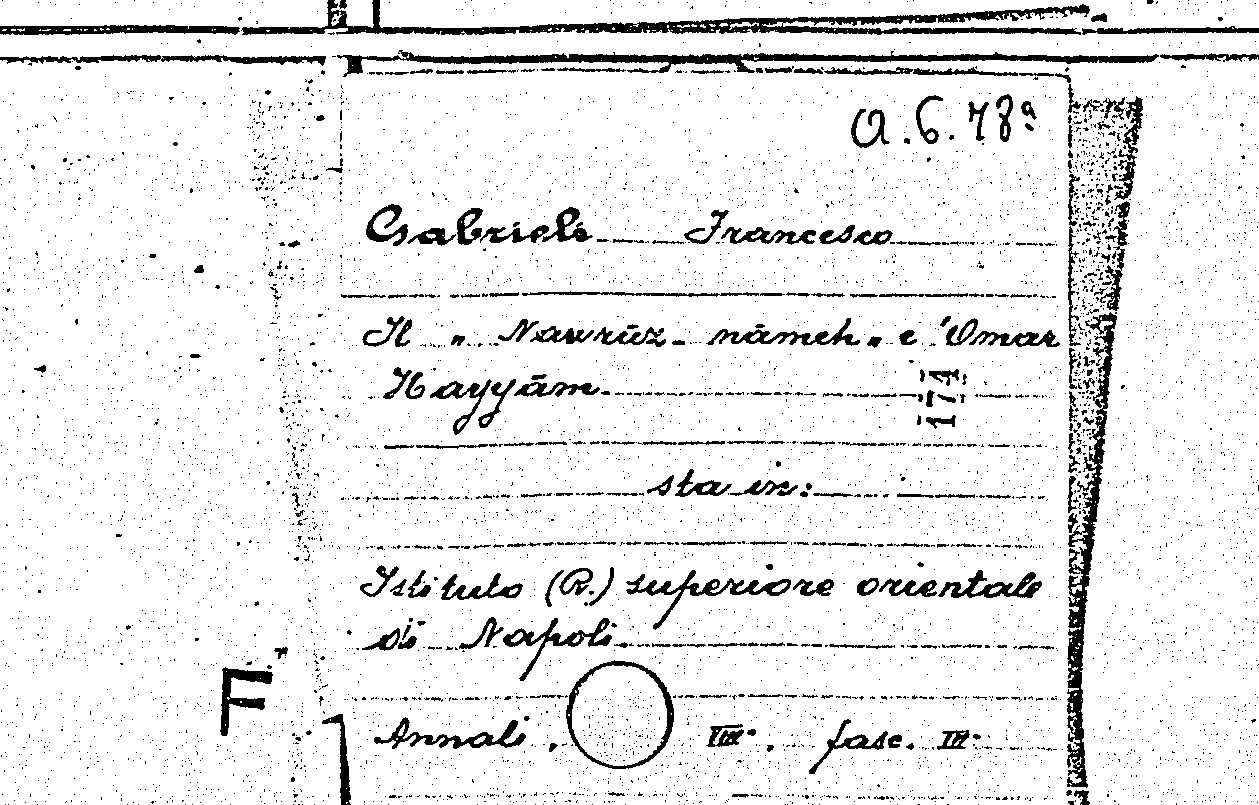 a.6.78ª
Gabrieli Francesco
Il „ Nawrūz - nāmeh „ e 'Omar
Hayyām.
174
sta in:
Istituto (R.) superiore orientale
di Napoli.
F
Annali . III. fasc. III.